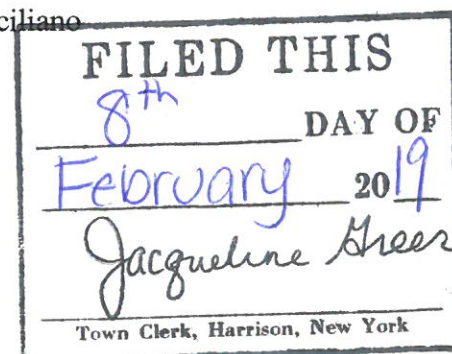 ciliano
FILED THIS
8th DAY OF
February 2019
Jacqueline Greer
Town Clerk, Harrison, New York